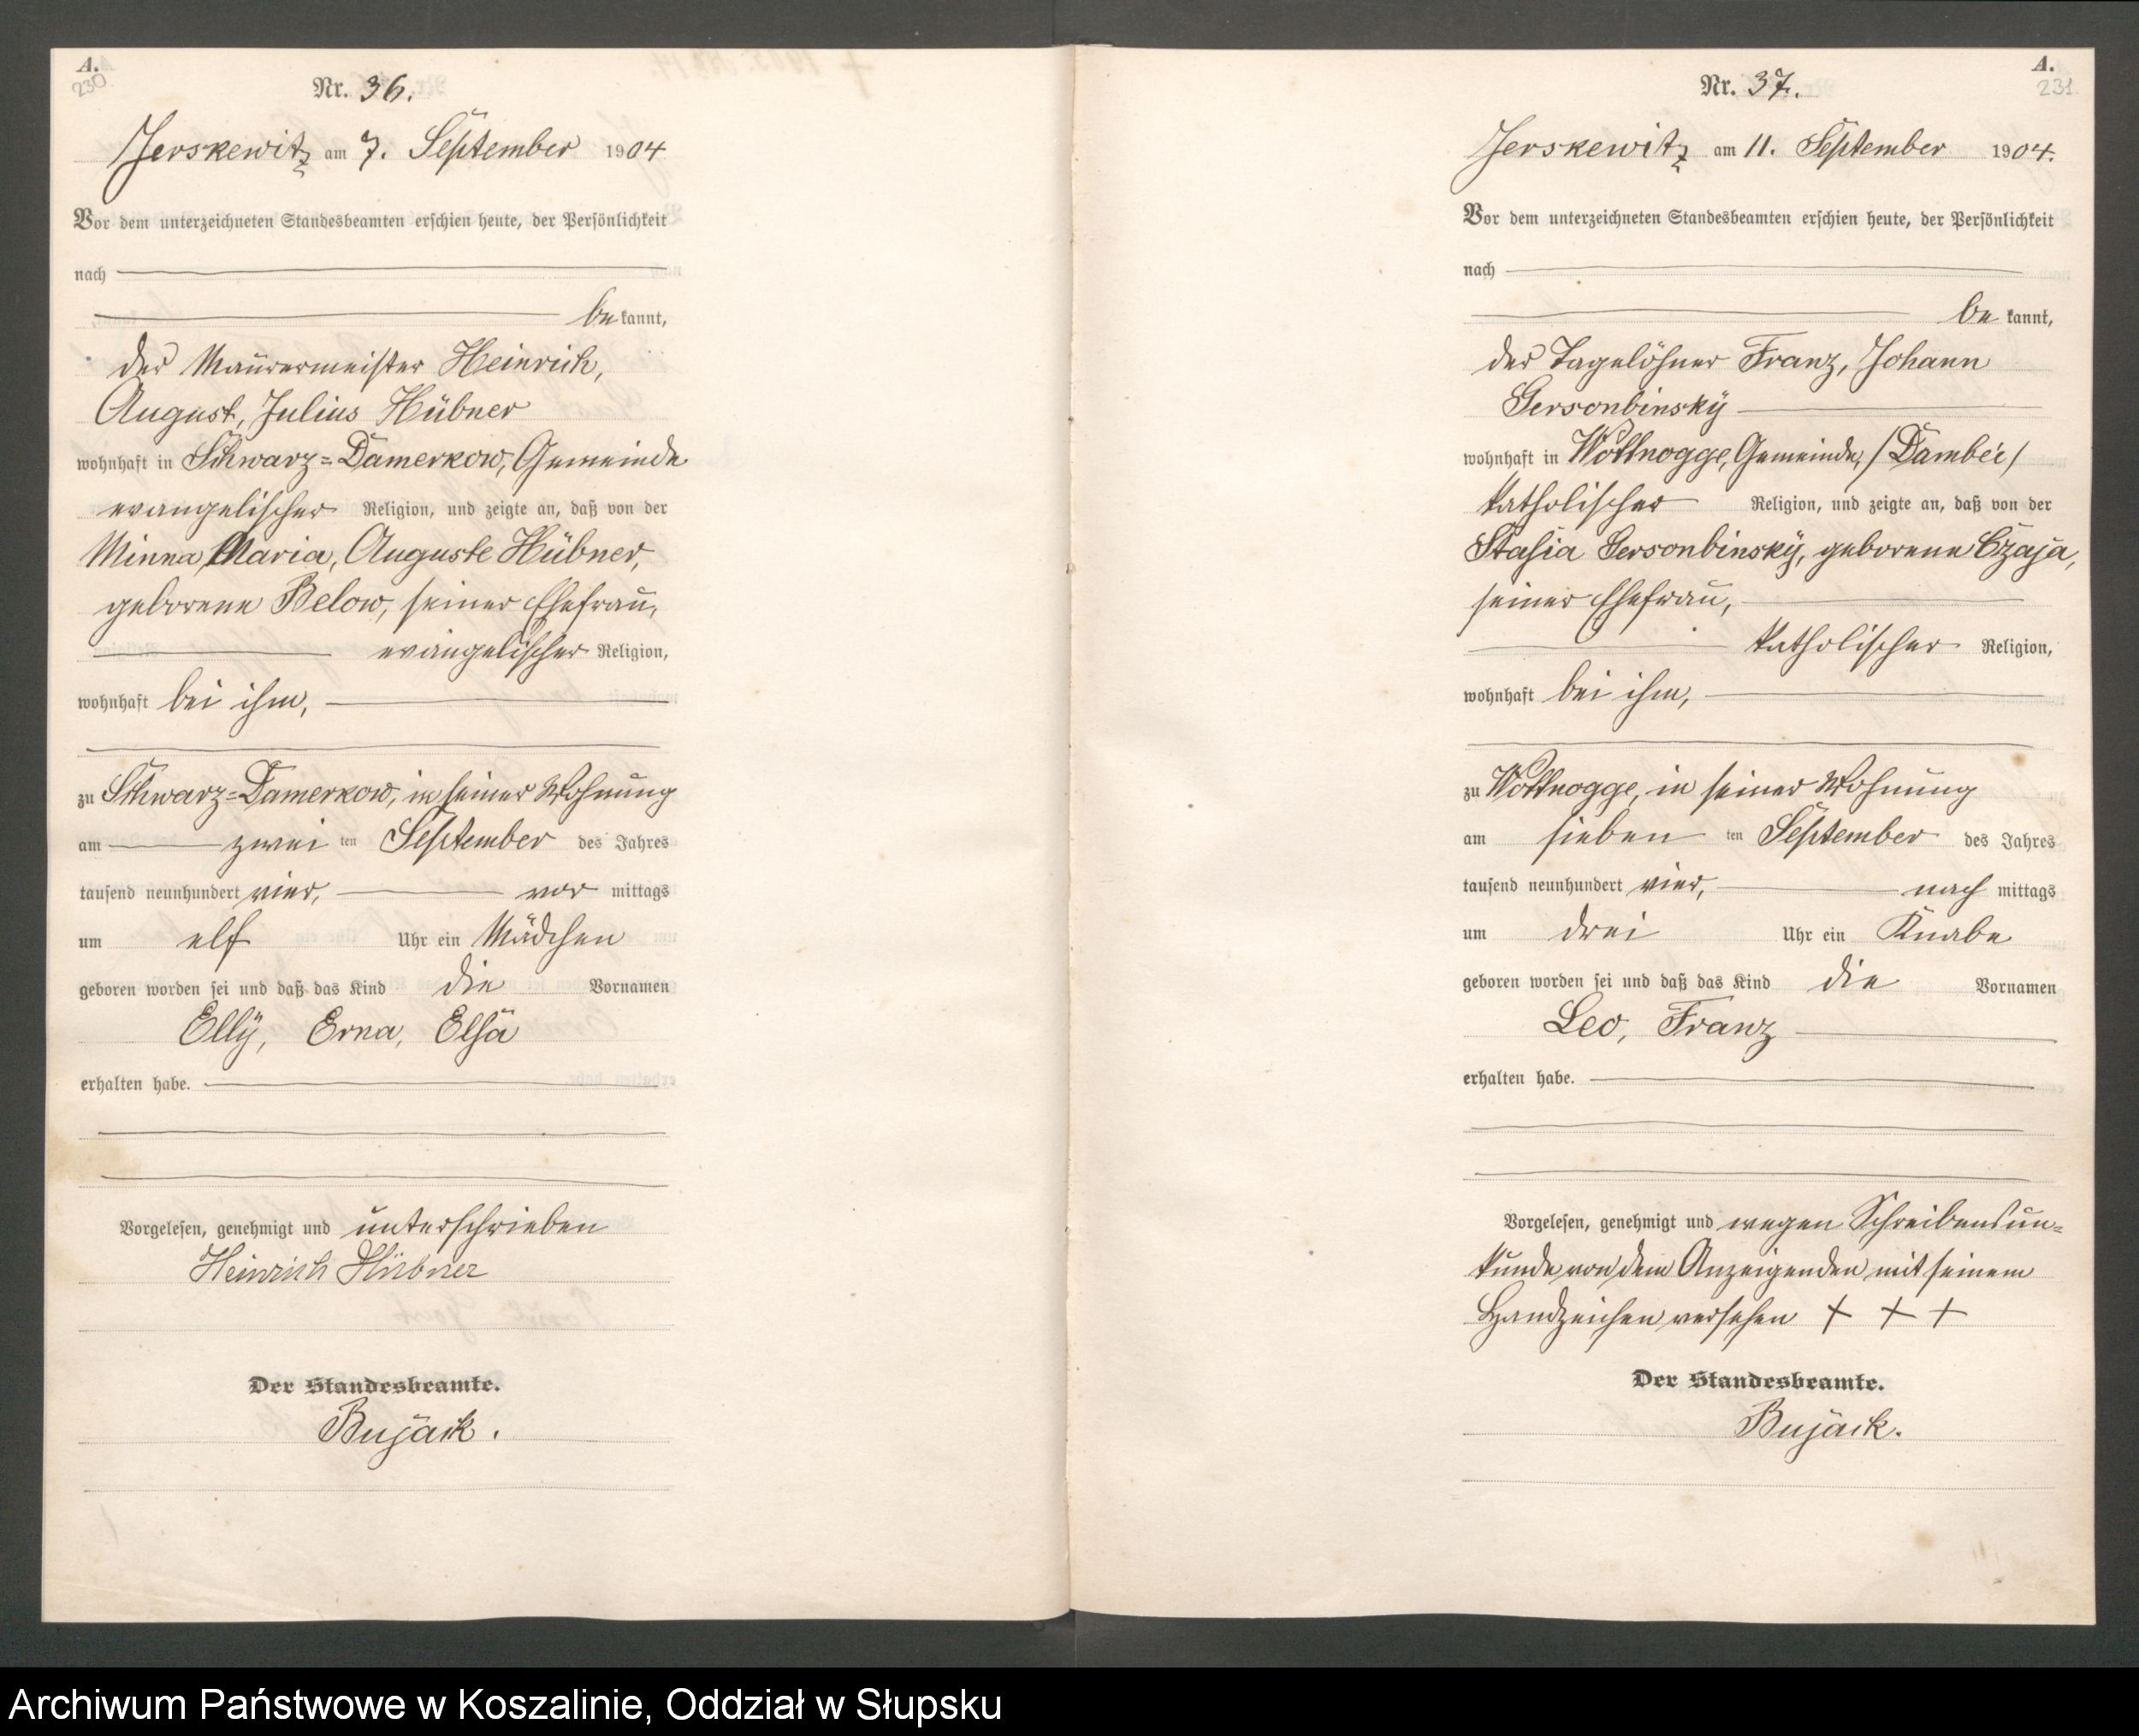 A.
230
Nr. 36.
Jerskewitz am 7. September 1904
Vor dem unterzeichneten Standesbeamten erschien heute, der Persönlichkeit
nach
be kannt,
der Maurermeister Heinrich,
August, Julius Hübner
wohnhaft in Schwarz=Damerkow, Gemeinde
evangelischer Religion, und zeigte an, daß von der
Minna, Maria, Auguste Hübner,
geborene Below, seiner Ehefrau,
evangelischer Religion,
wohnhaft bei ihm,
zu Schwarz=Damerkow, in seiner Wohnung
am zwei ten September des Jahres
tausend neunhundert vier, vor mittags
um elf Uhr ein Mädchen
geboren worden sei und daß das Kind die Vornamen
Elly, Erna, Elsa
erhalten habe.
Vorgelesen, genehmigt und unterschrieben
Heinrich Hübner
Der Standesbeamte.
Bujack.
A.
231
Nr. 37.
Jerskewitz am 11. September 1904.
Vor dem unterzeichneten Standesbeamten erschien heute, der Persönlichkeit
nach
be kannt,
der Tagelöhner Franz, Johann
Gersonbinsky
wohnhaft in Wottnogge, Gemeinde, /Dambee/
katholischer Religion, und zeigte an, daß von der
Stasia Gersonbinsky, geborene Czaja,
seiner Ehefrau,
katholischer Religion,
wohnhaft bei ihm,
zu Wottnogge, in seiner Wohnung
am sieben ten September des Jahres
tausend neunhundert vier, nach mittags
um drei Uhr ein Knabe
geboren worden sei und daß das Kind die Vornamen
Leo, Franz
erhalten habe.
Vorgelesen, genehmigt und wegen Schreibensun=
kunde von dem Anzeigenden mit seinem
Handzeichen versehen + + +
Der Standesbeamte.
Bujack.
Archiwum Państwowe w Koszalinie, Oddział w Słupsku